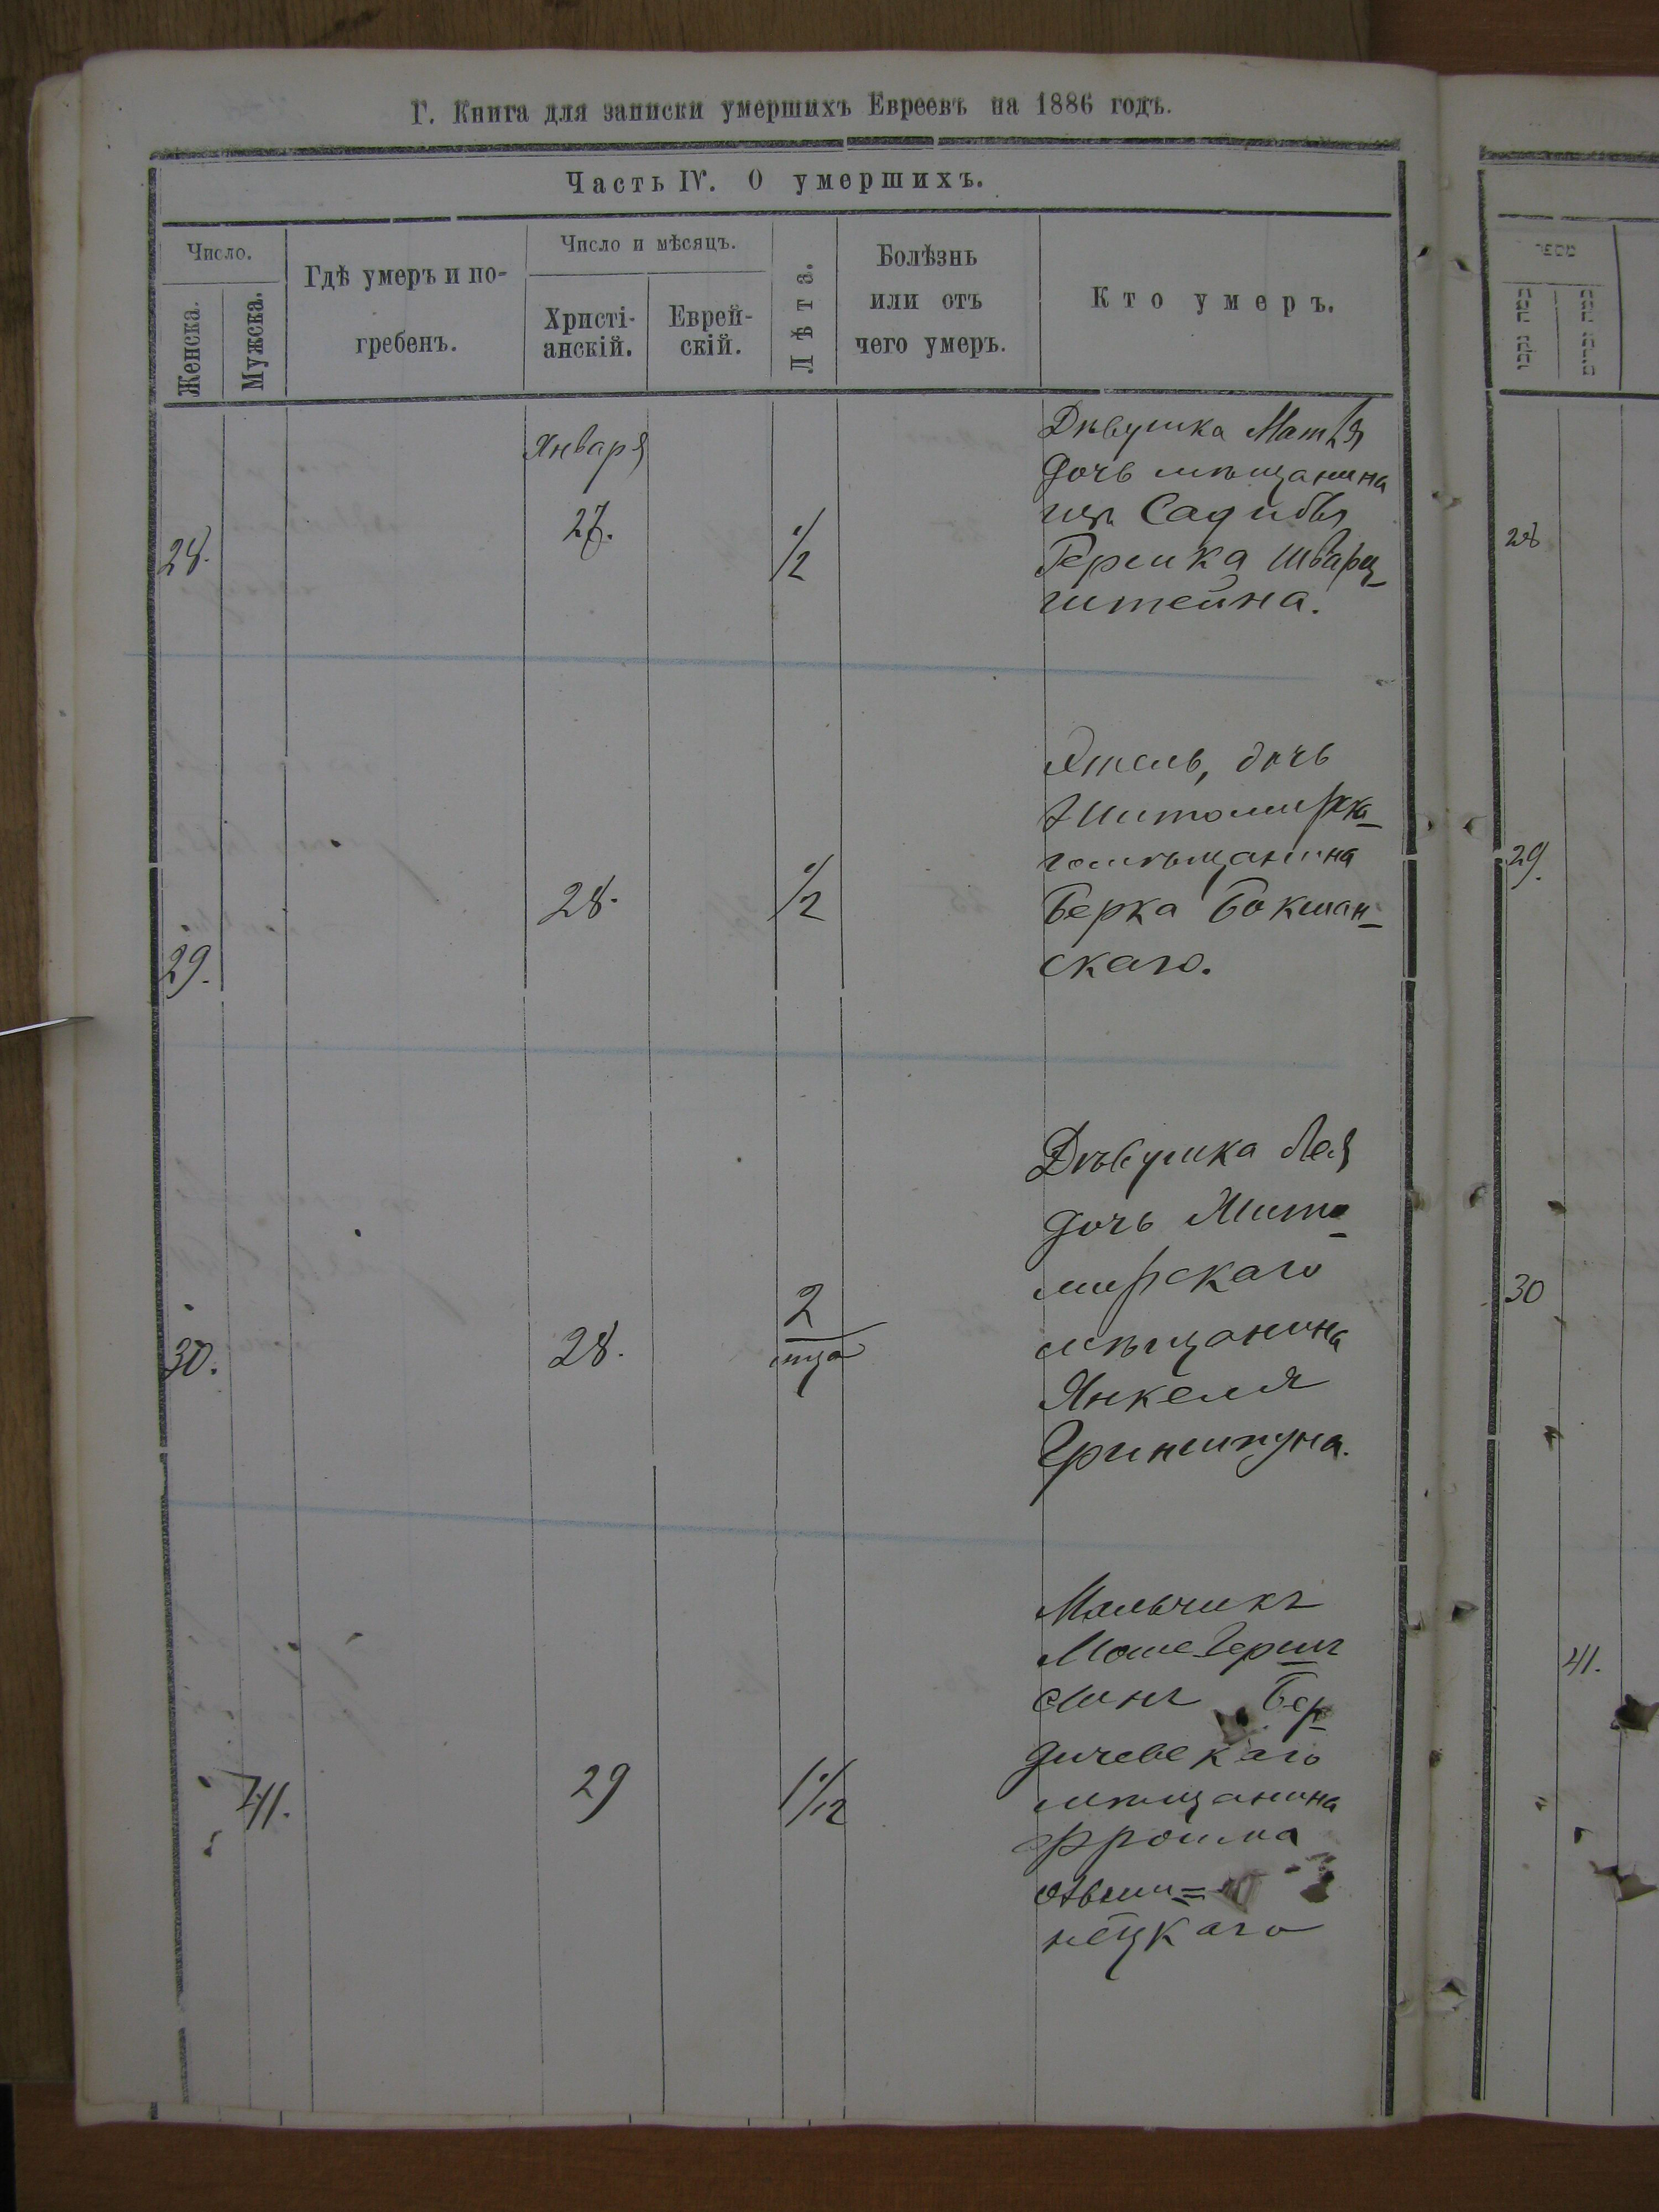 Г. Книга для записки умершихъ Евреевъ на 1886 годъ.
Часть IV. О умершихъ.
Число.
Женска.
Мужска.
Гдѣ умеръ и по-
гребенъ.
Число и мѣсяцъ.
Христі-
анскій.
Еврей-
скій.
Лѣта.
Болѣзнь
или отъ
чего умеръ.
Кто умеръ.
מספר
28.
Января
27.
1/2
Дѣвушка Матля
дочь мѣщанина
изъ Садибы
Гершка Шварц-
штейна.
28
29.
28.
1/2
Этель, дочь
Житомирска-
го мѣщанина
Берка Бокшан-
скаго.
29.
30.
28.
2
мца
Дѣвушка Лея
дочь Жито-
мирскаго
мѣщанина
Янкеля
Гриншпуна.
30
41.
29
1 1/12
Мальчикъ
Моше Гершъ
сынъ Бер-
дичевскаго
мѣщанина
Фроима
нецкаго
41.